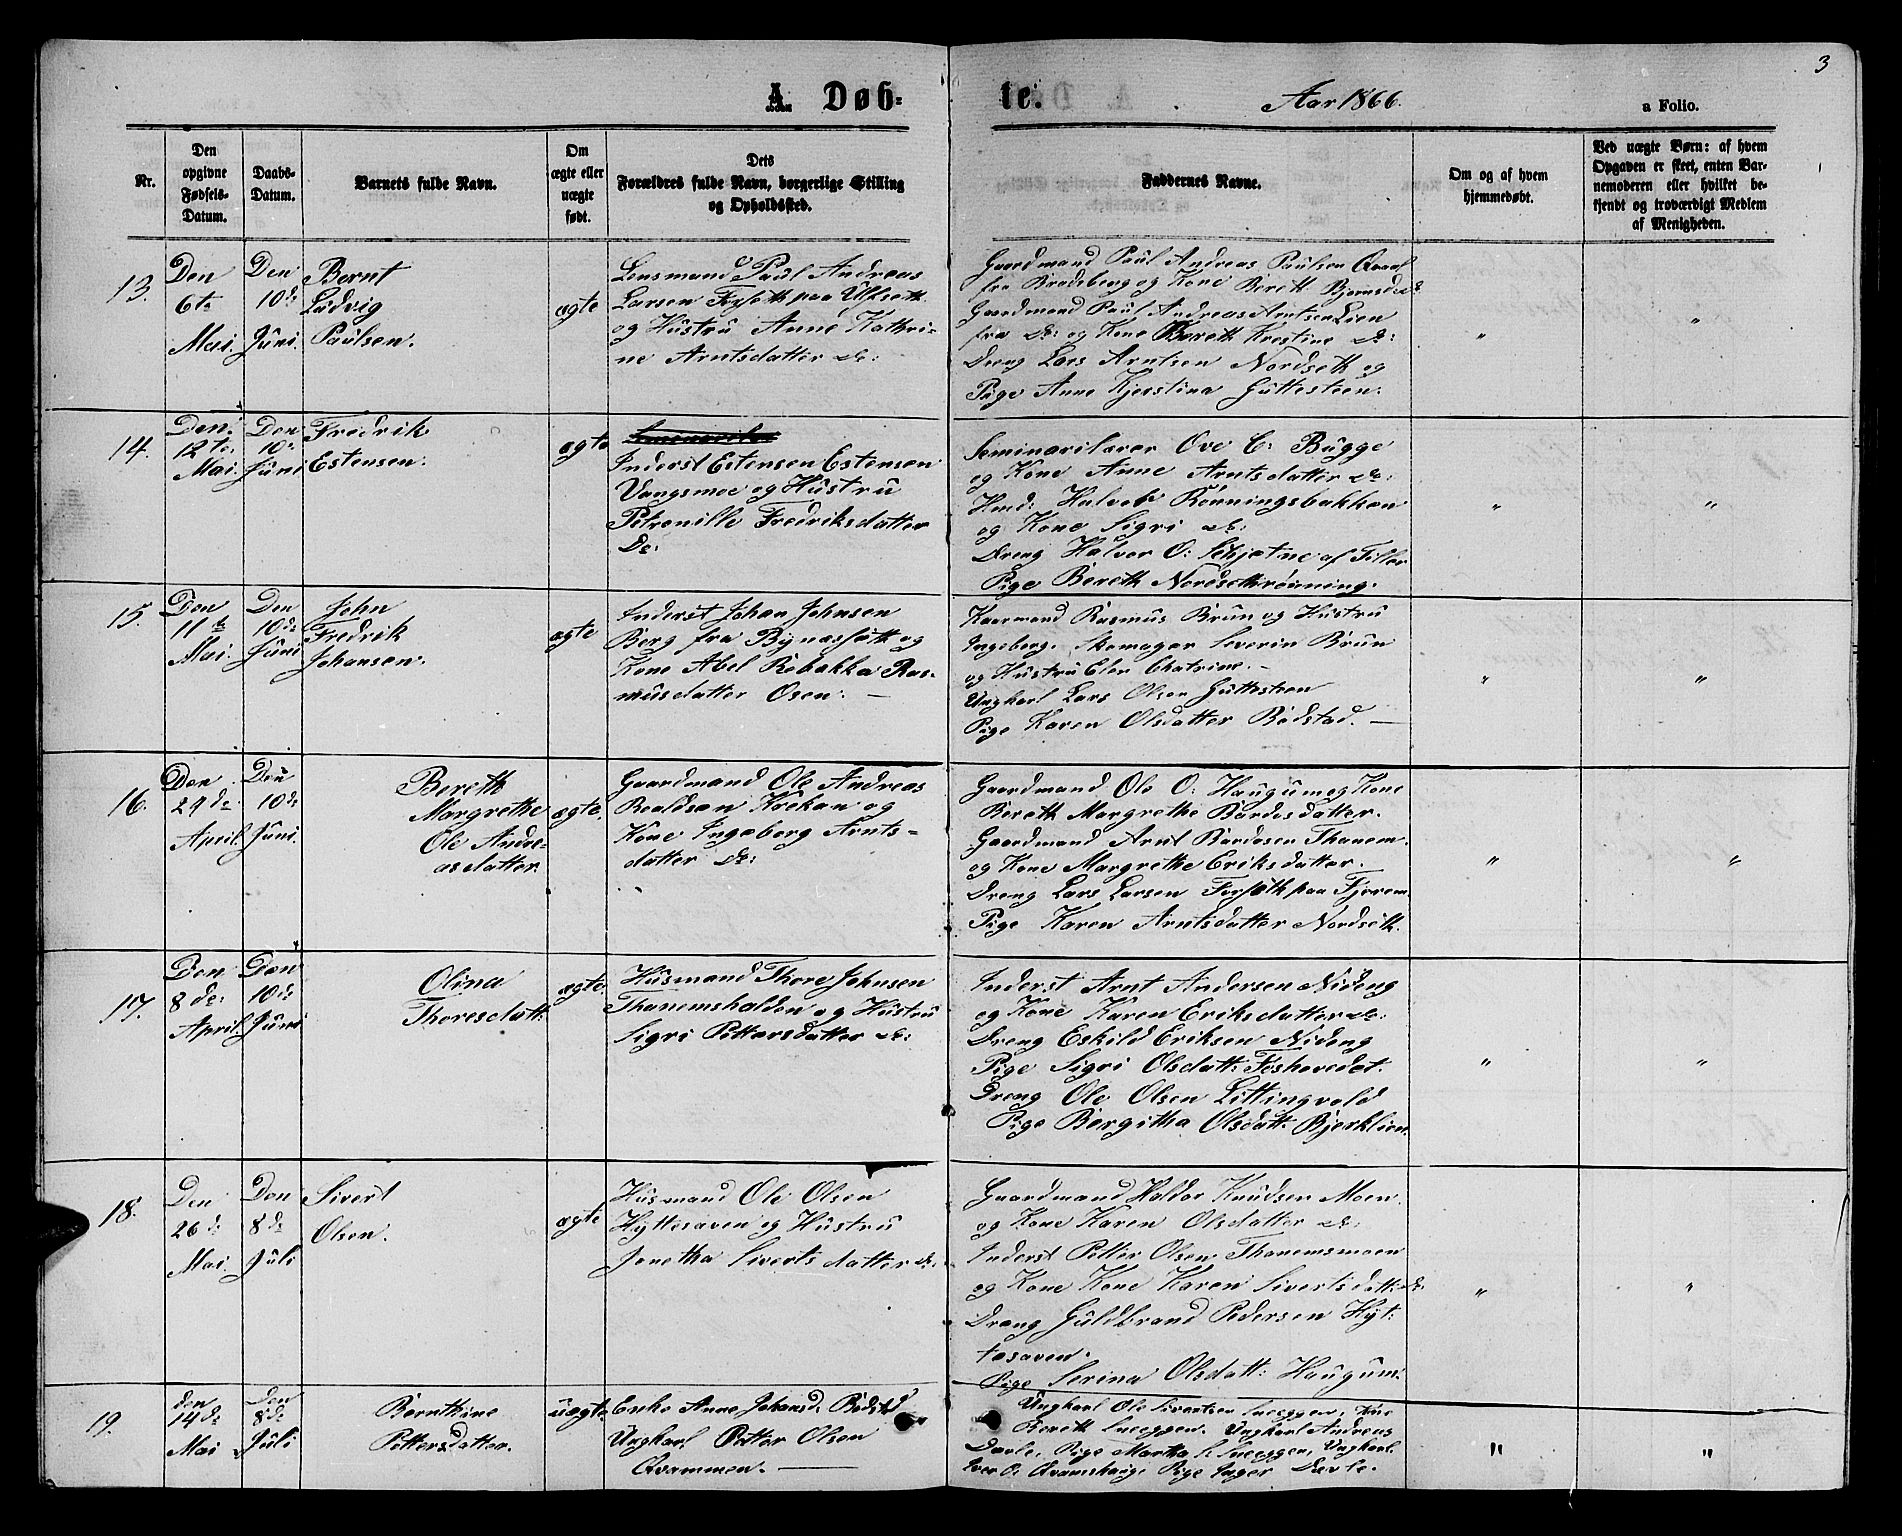 3
A. Døb-
te.
Aar 1866.
a Folio.
Nr.
Den
opgivne
Fødsels-
Datum.
Daabs-
Datum.
Barnets fulde Navn.
Om
ægte eller
uægte
født.
Dets
Forældres fulde Navn, borgerlige Stilling
og Opholdssted.
Faddernes Navne.
Om og af hvem
hjemmedøbt.
Ved uægte Børn: af hvem
Opgaven er skeet, enten Bar-
nemoderen eller hvilket be-
kjendt og troværdigt Medlem
af Menigheden.
13.
Den
6te
Mai.
Den
10de
Juni.
Bernt
Ludvig
Paulsen.
ægte
Lensmand Paul Andreas
Larsen Forseth paa Ulseth
og Hustru Anne Kathri-
ne Arntsdatter de:
Gaardmand Paul Andreas Paulsen
fra Bradsberg og Kone Bereth Bjørnsd: de:
Gaardmand Paul Andreas Arntsen Lien
fra de: og Kone Bereth Kristine de:
Dreng Lars Arntsen Nordseth og
Pige Anne Kjerstina Guttesteen.
"
"
14.
Den
12te
Mai.
Den
10de
Juni
Fredrik
Estensen.
ægte
Inderst Estensen Estensen
Vangsmoe og Hustru
Petronille Fredriksdatter
De:
Seminarilærer Ove C: Bugge
og Kone Anne Arntsdatter de:
Hmd: Halvor Rønningsbakken
og Kone Sigri de:
Dreng Halvor O: Schjetne af Tiller
Pige Bereth Nordsethrønning.
"
"
15.
Den
11te
Mai.
Den
10de
Juni
John
Fredrik
Johansen.
ægte
Inderst Johan Johnsen
Berg fra Bynæsset og
Kone Abel Rebakka Ras-
musdatter Osen: —
Kaarmand Rasmus Brun og Hustru
Ingeborg. Skomager Severin Brun
og Hustru Elen Chatrine. -
Ungkarl Lars Olsen Guttesteen
Pige Karen Olsdatter Rødstad. —
"
"
16.
Den
27de
April.
Den
10de
Juni.
Bereth
Margrethe
Ole Andre-
asdatter.
ægte.
Gaardmand Ole Andreas
Roaldsen Krekan og
Kone Ingeborg Arnts-
datter de:
Gaardmand Ole O: Haugum og Kone
Bereth Margrethe Bardosdatter.
Gaardmand Arnt Bardosen Thanem
og Kone Margrethe Eriksdatter.
Dreng Lars Larsen Forseth paa Fjerem
Pige Karen Arntsdatter Nordseth.
"
"
17.
Den
8de:
April.
Den
10de
Juni
Olina
Thoresdatt:
ægte.
Husmand Thore Johnsen
Thanemshalden og Hustru
Sigri Pettersdatter de:
Inderst Arnt Andersen Nideng
og Kone Karen Eriksdatter de:
Dreng Eskild Eriksen Nideng
Pige Sigri Olsdatt: Foshovedet.
Dreng Ole Olsen Littingvold
Pige Bergitha Olsdatt: Bjerklien.
"
"
18.
Den
26de
Mai.
Den
8de
Juli
Sivert
Olsen.
ægte
Husmand Ole Olsen
Hyttesaven og Hustru
Jonetha Sivertsdatter de.
Gaardmand Haldor Knudsen Moen.
og Kone Karen Olsdatter de:
Inderst Petter Olsen Thanemsmoen
og Kone Kone Karen Sivertsdatt: de:
Dreng Guldbrand Pedersen Hyt:
tesaven.
Pige Serina Olsdatt: Haugum.
"
"
19.
den
14de
Mai
den
8de
Juli
Bernthine
Pettersdatter.
uægte
Enke Anne Johansd: Rødstd
Ungkarl Petter Olsen
Qvammen. —
Ungkarl Ole Sivertsen Sneeggen, Kone
Bereth Sneeggen. Ungkarl Andreas
Davle, Pige Martha S: Sneeggen, Ungkarl
Iver O: Qvamshaug, Pige Inger Davle.
"
"